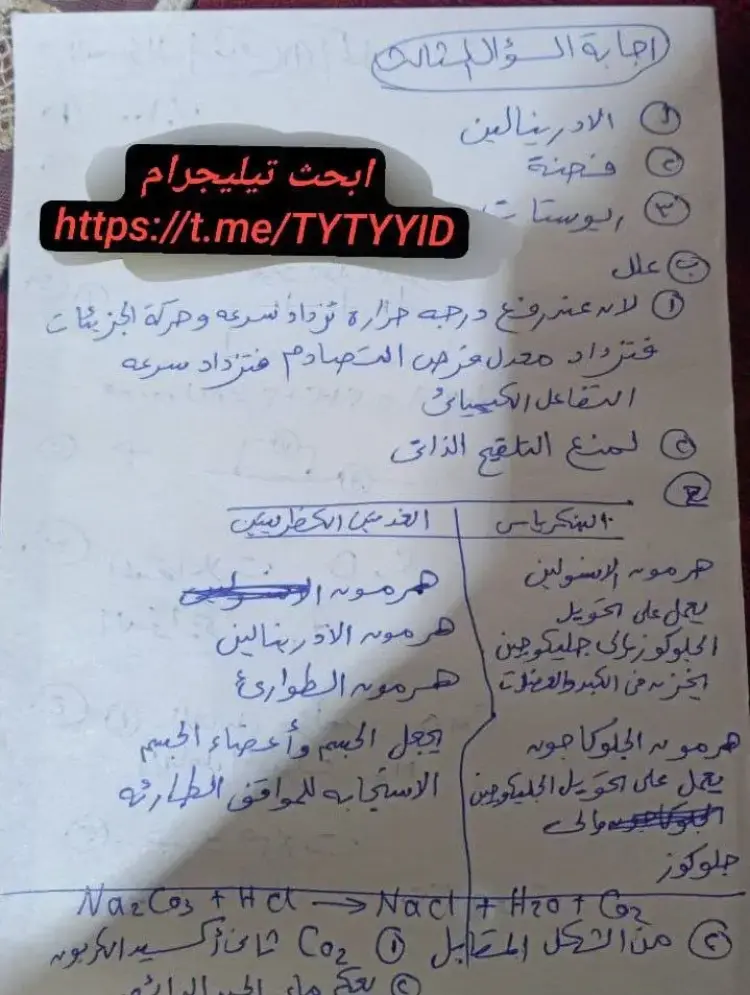 اجابة السؤال الثالث
١ الادرينالين
٢ فضة
٣ ريوستات
ابحث تيليجرام
https://t.me/TYTYYID
ب علل
١ لانه عند رفع درجه حراره تزداد سرعه وحركة الجزيئات
فتزداد معدل فرص التصادم فتزداد سرعه
التفاعل الكيميائى
٢ لمنع التلقيح الذاتى
ج
البنكرياس
هرمون الانسولين
يعمل على تحويل
الجلوكوز إلى جليكوجين
يخزن فى الكبد والعضلات
هرمون الجلوكاجون
يعمل على تحويل الجليكوجين
إلى
جلوكوز
الغدتين الكظريتين
هرمون
هرمون الادرينالين
هرمون الطوارئ
يجعل الجسم وأعضاء الجسم
الاستجابه للمواقف الطارئه
Na2Co3 + Hcl → Nacl + H2o + Co2
٢ من الشكل المقابل ١ Co2 ثانى أكسيد الكربون
٢ يعكر ماء الجير الرائق